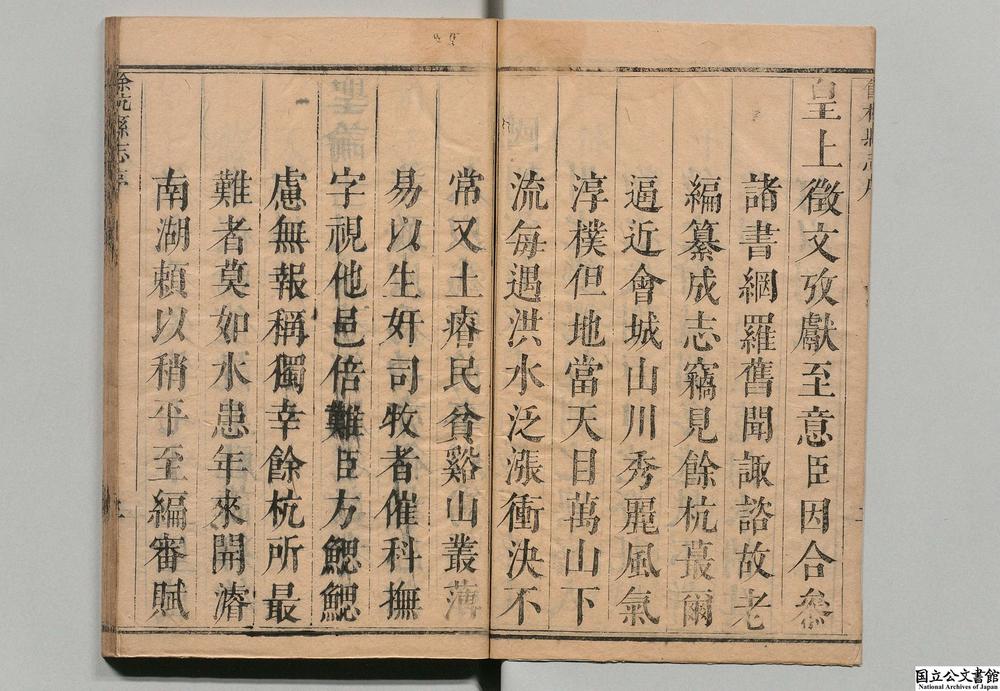 皇上徵文攷獻至意臣因合叅
諸書網羅舊聞諏諮故老
編纂成志竊見餘杭蕞爾
逼近會城山川秀麗風氣
淳樸但地當天目萬山下
流每遇洪水泛漲衝決不
常又土瘠民貧谿山叢薄
易以生奸司牧者催科撫
字視他邑倍難臣方鰓鰓
慮無報稱獨幸餘杭所最
難者莫如水患年來開濬
南湖賴以稍平至編審賦
餘杭縣志序
国立公文書館
National Archives of Japan